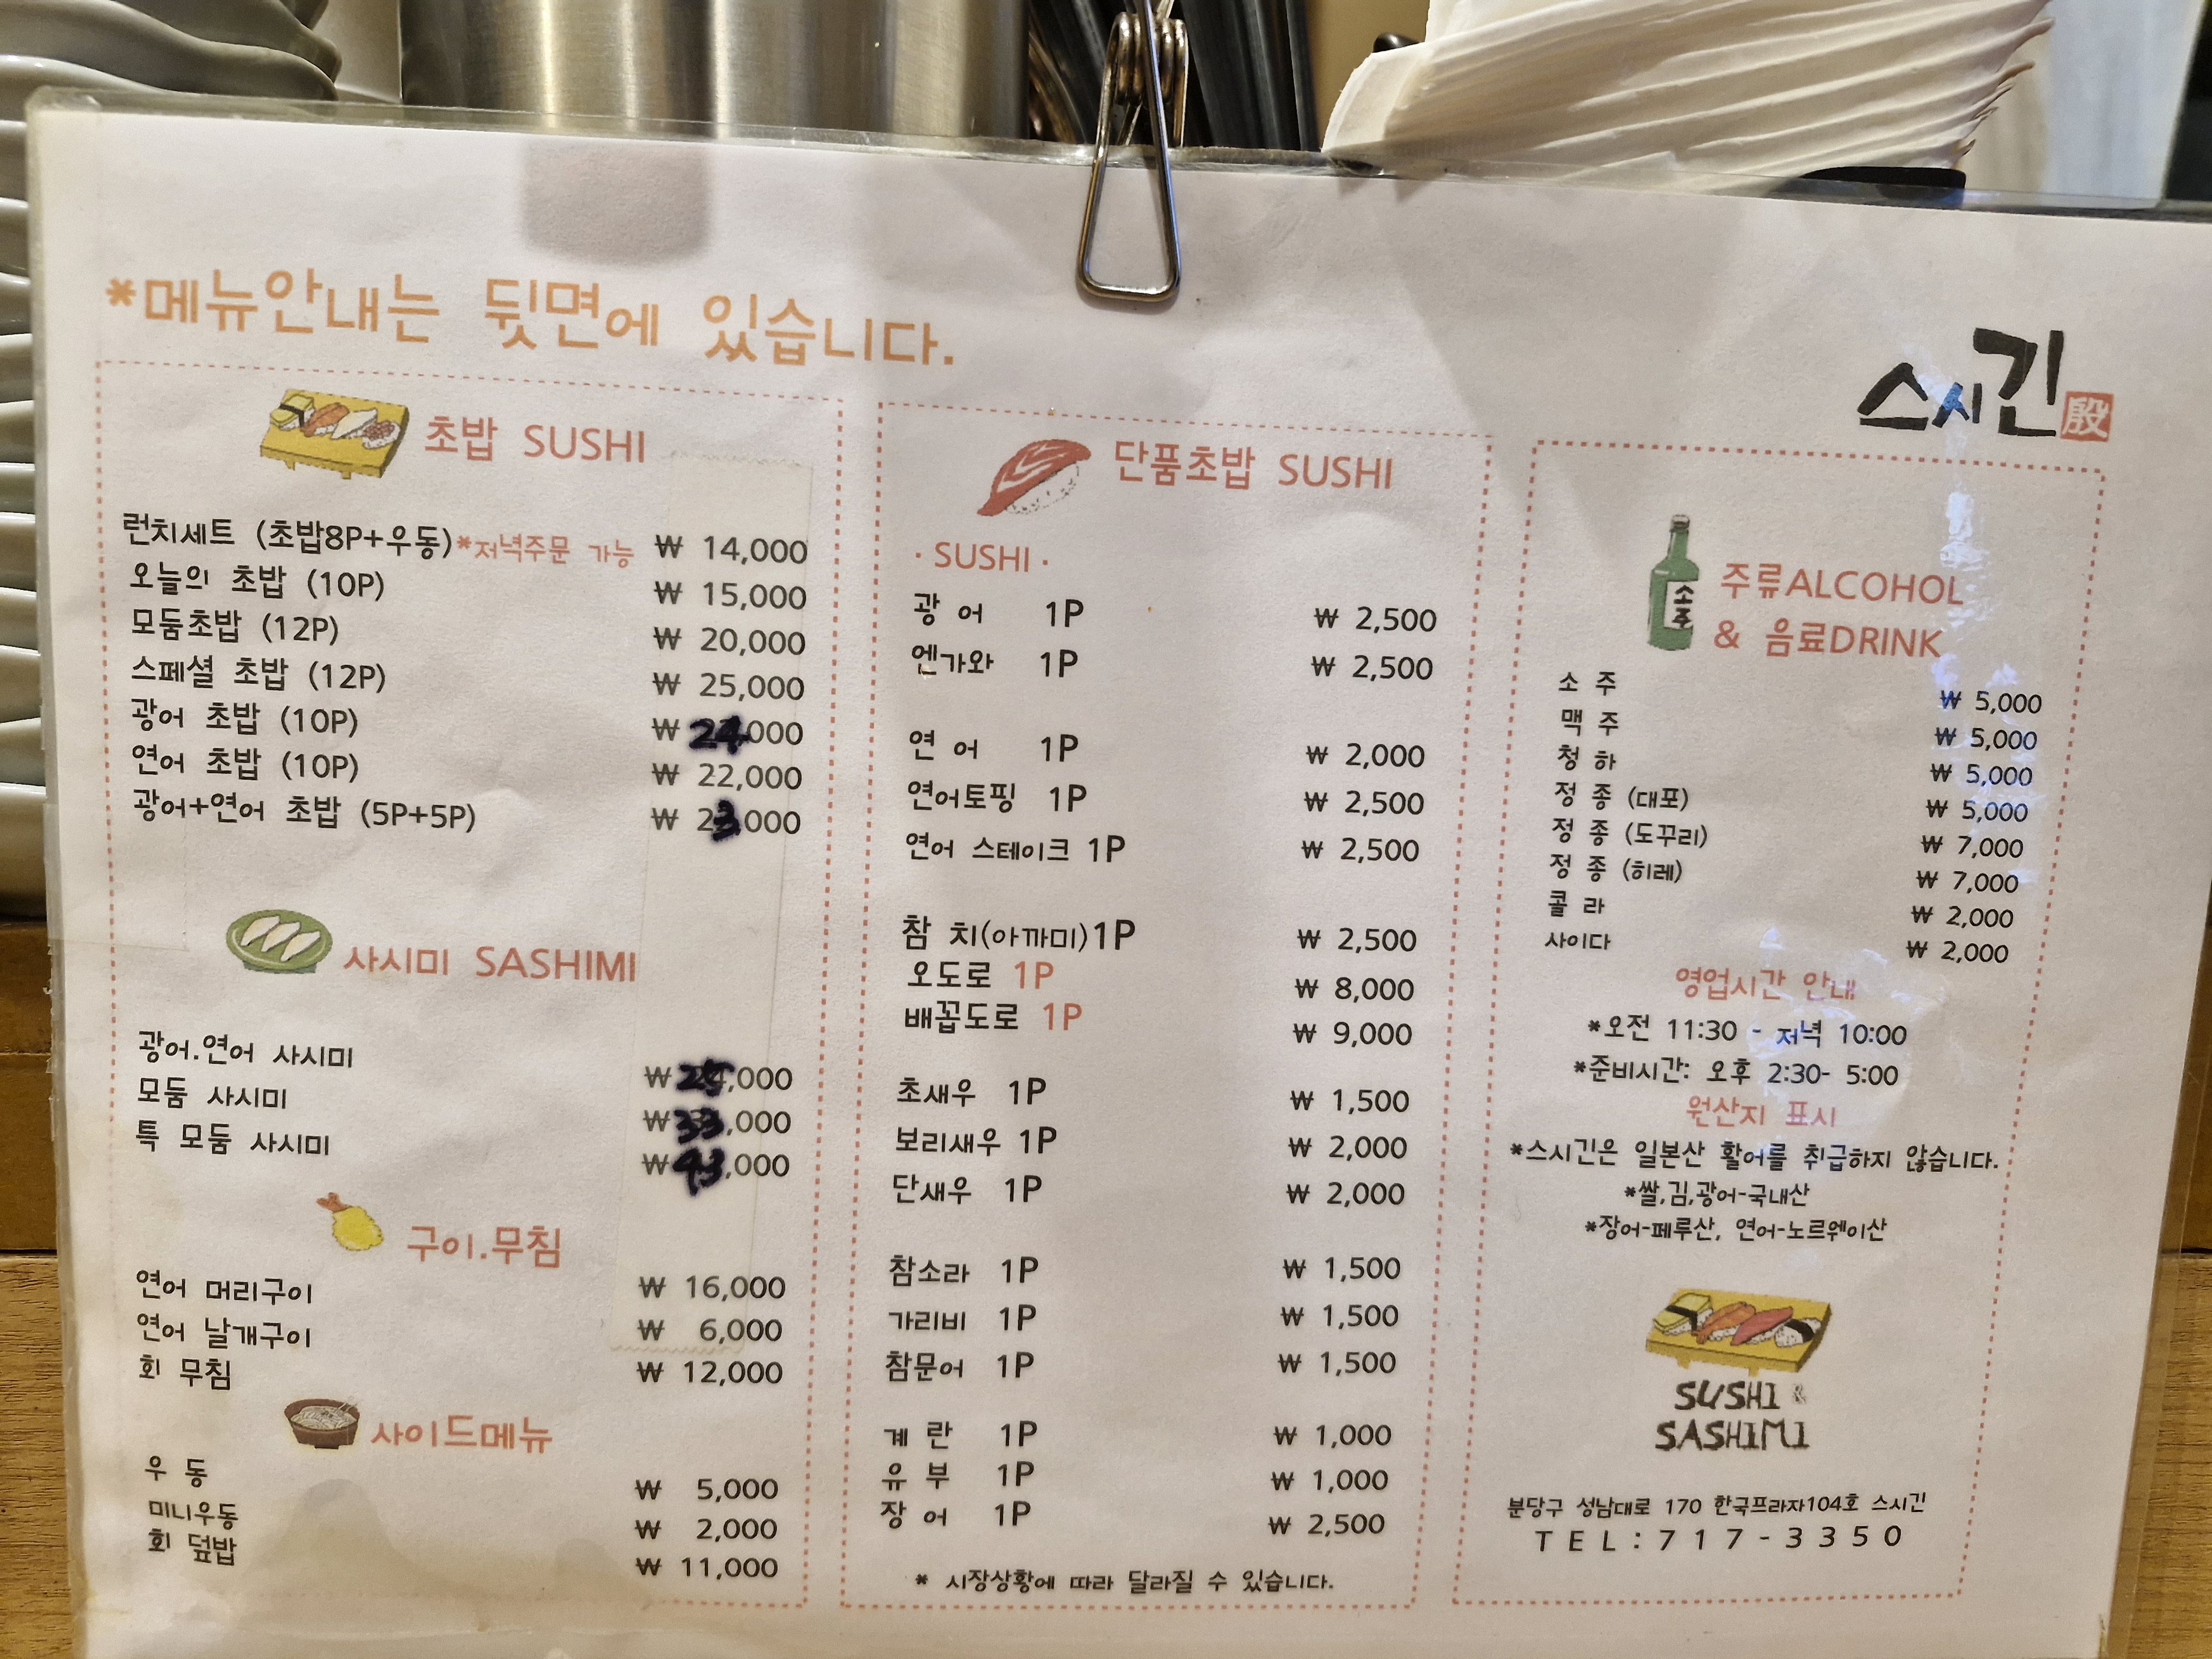 *메뉴안내는 뒷면에 있습니다.
스시긴 殷
초밥 SUSHI
런치세트 (초밥8P+우동)*저녁주문 가능 ₩ 14,000
오늘의 초밥 (10P) ₩ 15,000
모둠초밥 (12P) ₩ 20,000
스페셜 초밥 (12P) ₩ 25,000
광어 초밥 (10P) ₩ 24,000
연어 초밥 (10P) ₩ 22,000
광어+연어 초밥 (5P+5P) ₩ 23,000
사시미 SASHIMI
광어.연어 사시미 ₩ 25,000
모둠 사시미 ₩ 33,000
특 모둠 사시미 ₩ 43,000
구이.무침
연어 머리구이 ₩ 16,000
연어 날개구이 ₩ 6,000
회 무침 ₩ 12,000
사이드메뉴
우 동 ₩ 5,000
미니우동 ₩ 2,000
회 덮밥 ₩ 11,000
단품초밥 SUSHI
· SUSHI ·
광 어 1P ₩ 2,500
엔가와 1P ₩ 2,500
연 어 1P ₩ 2,000
연어토핑 1P ₩ 2,500
연어 스테이크 1P ₩ 2,500
참 치(아까미)1P ₩ 2,500
오도로 1P ₩ 8,000
배꼽도로 1P ₩ 9,000
초새우 1P ₩ 1,500
보리새우 1P ₩ 2,000
단새우 1P ₩ 2,000
참소라 1P ₩ 1,500
가리비 1P ₩ 1,500
참문어 1P ₩ 1,500
계 란 1P ₩ 1,000
유 부 1P ₩ 1,000
장 어 1P ₩ 2,500
* 시장상황에 따라 달라질 수 있습니다.
소주
주류ALCOHOL
& 음료DRINK
소 주 ₩ 5,000
맥 주 ₩ 5,000
청 하 ₩ 5,000
정 종 (대포) ₩ 5,000
정 종 (도꾸리) ₩ 7,000
정 종 (히레) ₩ 7,000
콜 라 ₩ 2,000
사이다 ₩ 2,000
영업시간 안내
*오전 11:30 - 저녁 10:00
*준비시간: 오후 2:30- 5:00
원산지 표시
*스시긴은 일본산 활어를 취급하지 않습니다.
*쌀,김,광어-국내산
*장어-페루산, 연어-노르웨이산
SUSHI &
SASHIMI
분당구 성남대로 170 한국프라자104호 스시긴
TEL:717-3350